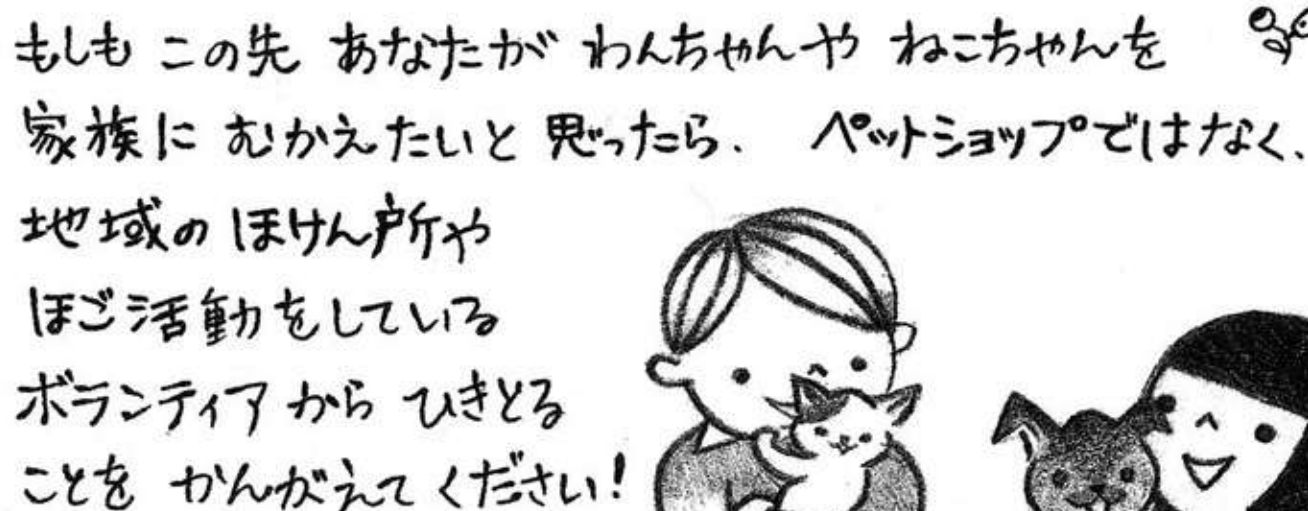 もしも この先 あなたが わんちゃんや ねこちゃんを
家族に むかえたいと 思ったら、 ペットショップではなく、
地域の ほけん所や
ほご活動をしている
ボランティア から ひきとる
ことを かんがえて ください!